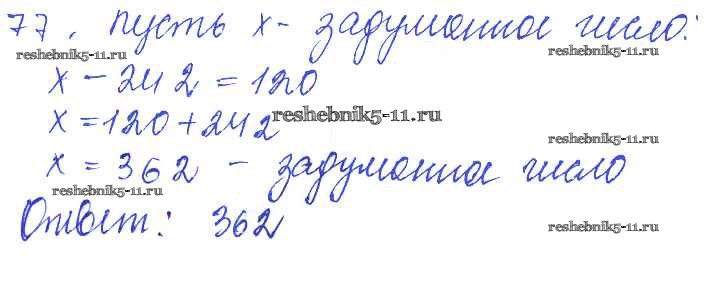 77. Пусть x - задуманное число:
reshebnik5-11.ru reshebnik5-11.ru
x - 242 = 120
x = 120 + 242 reshebnik5-11.ru
reshebnik5-11.ru
x = 362 - задуманное число
reshebnik5-11.ru
Ответ: 362
reshebnik5-11.ru